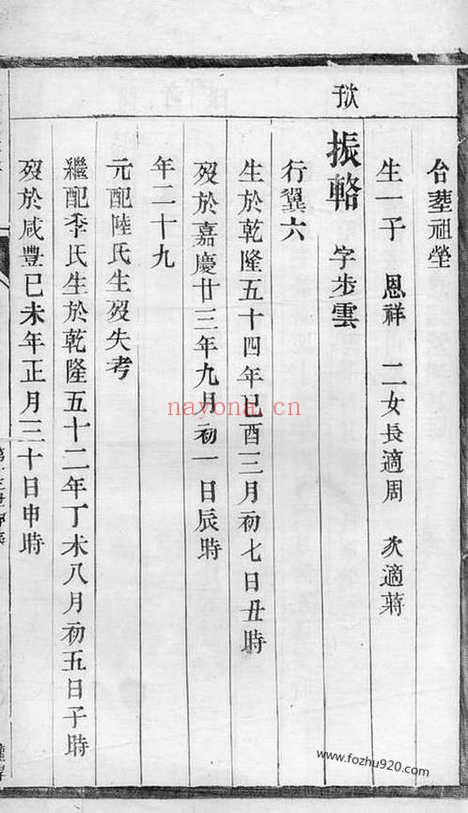 合葬祖塋
生一子 恩祥 二女長適周 次適蔣
振輅 字步雲
行翼六
生於乾隆五十四年己酉三月初七日丑時
歿於嘉慶廿三年九月初一日辰時
年二十九
元配陸氏生歿失考
繼配季氏生於乾隆五十二年丁未八月初五日子時
歿於咸豐己未年正月三十日申時
nayona.cn
www.fozhu920.com